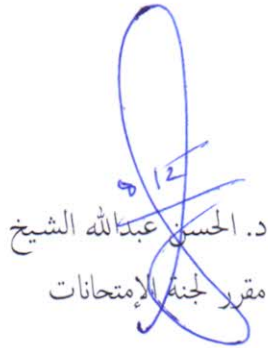 د. الحسن عبدالله الشيخ
مقرر لجنة الإمتحانات